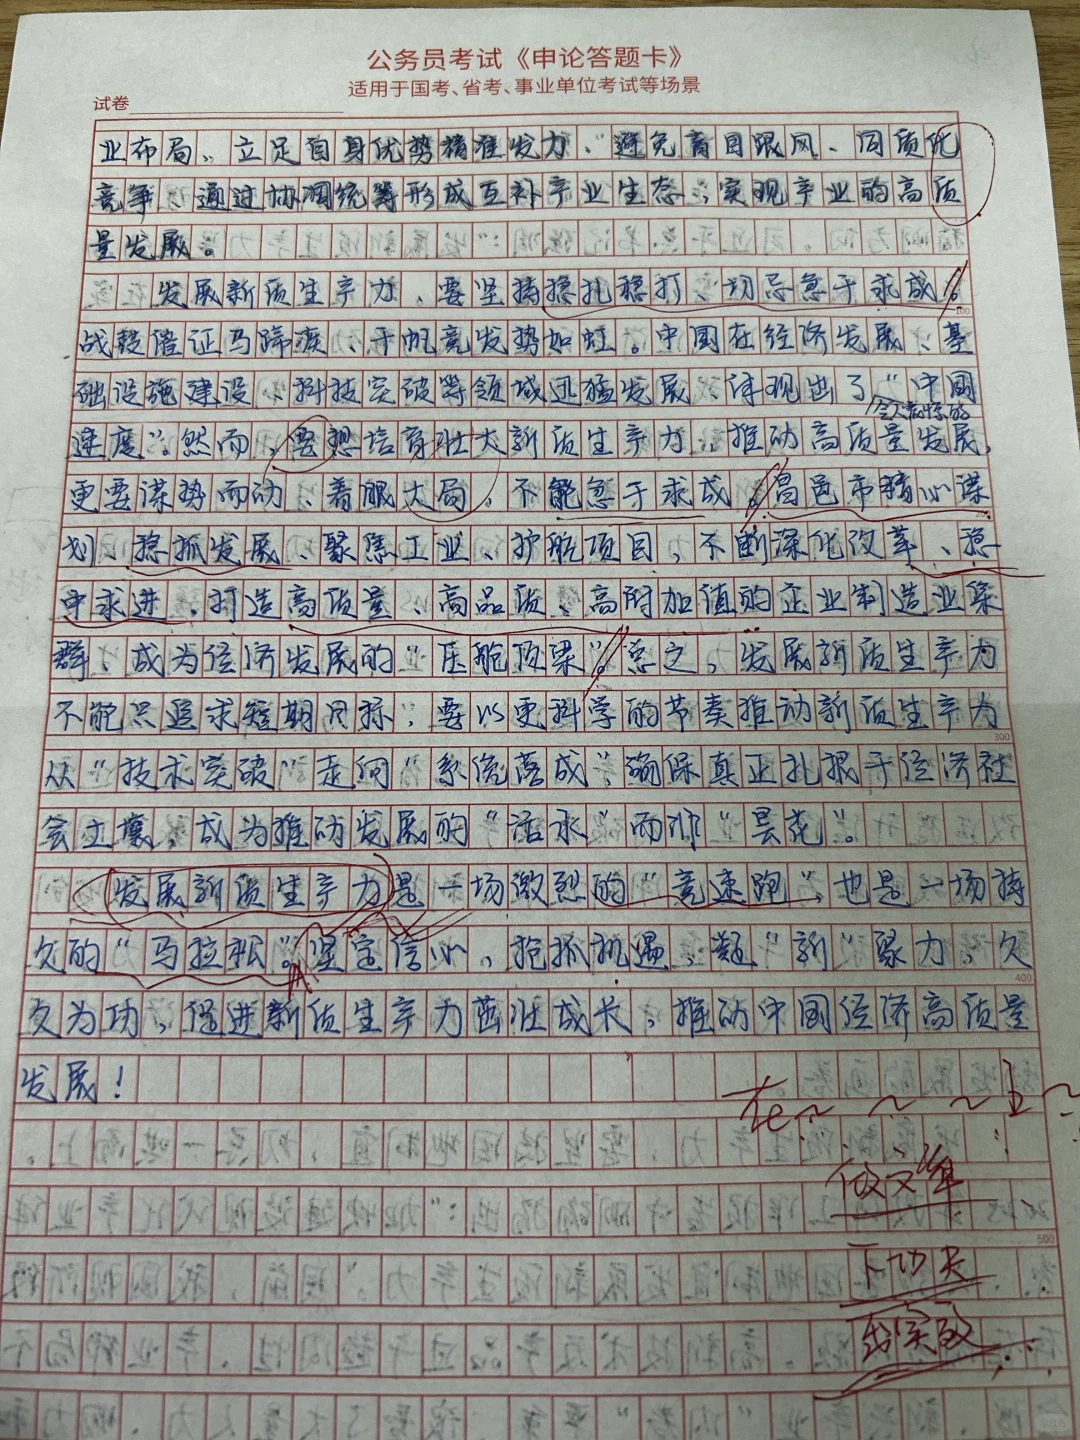 公务员考试《申论答题卡》
适用于国考、省考、事业单位考试等场景
试卷
业布局、立足自身优势精准发力、避免盲目跟风、同质化
竞争，通过协调统筹形成互补产业生态，实现产业的高质
量发展。
发展新质生产力，要坚持稳扎稳打，切忌急于求成。
100
战鼓催征马蹄疾，千帆竞发势如虹。中国在经济发展、基
础设施建设、科技突破等领域迅猛发展，体现出了"中国
速度"。然而，要想培育壮大新质生产力，推动高质量发展，
更要谋势而动、着眼大局，不能急于求成。昌邑市精心谋
划，稳抓发展、聚焦工业、护航项目，不断深化改革、稳
中求进，打造高质量、高品质、高附加值的企业制造业集
群，成为经济发展的"压舱顶梁"。总之，发展新质生产力
不能只追求短期目标，要以更科学的节奏推动新质生产力
300
从"技术突破"走向"系统落成"，确保真正扎根于经济社
会土壤，成为推动发展的"活水"而非"昙花"。
发展新质生产力是一场激烈的"竞速跑"，也是一场持
久的"马拉松"。坚定信心，抢抓机遇，题"新"聚力，久
400
久为功，促进新质生产力茁壮成长，推动中国经济高质量
发展！
在~ ~ ~上~
做文章
下功夫
出实效
500